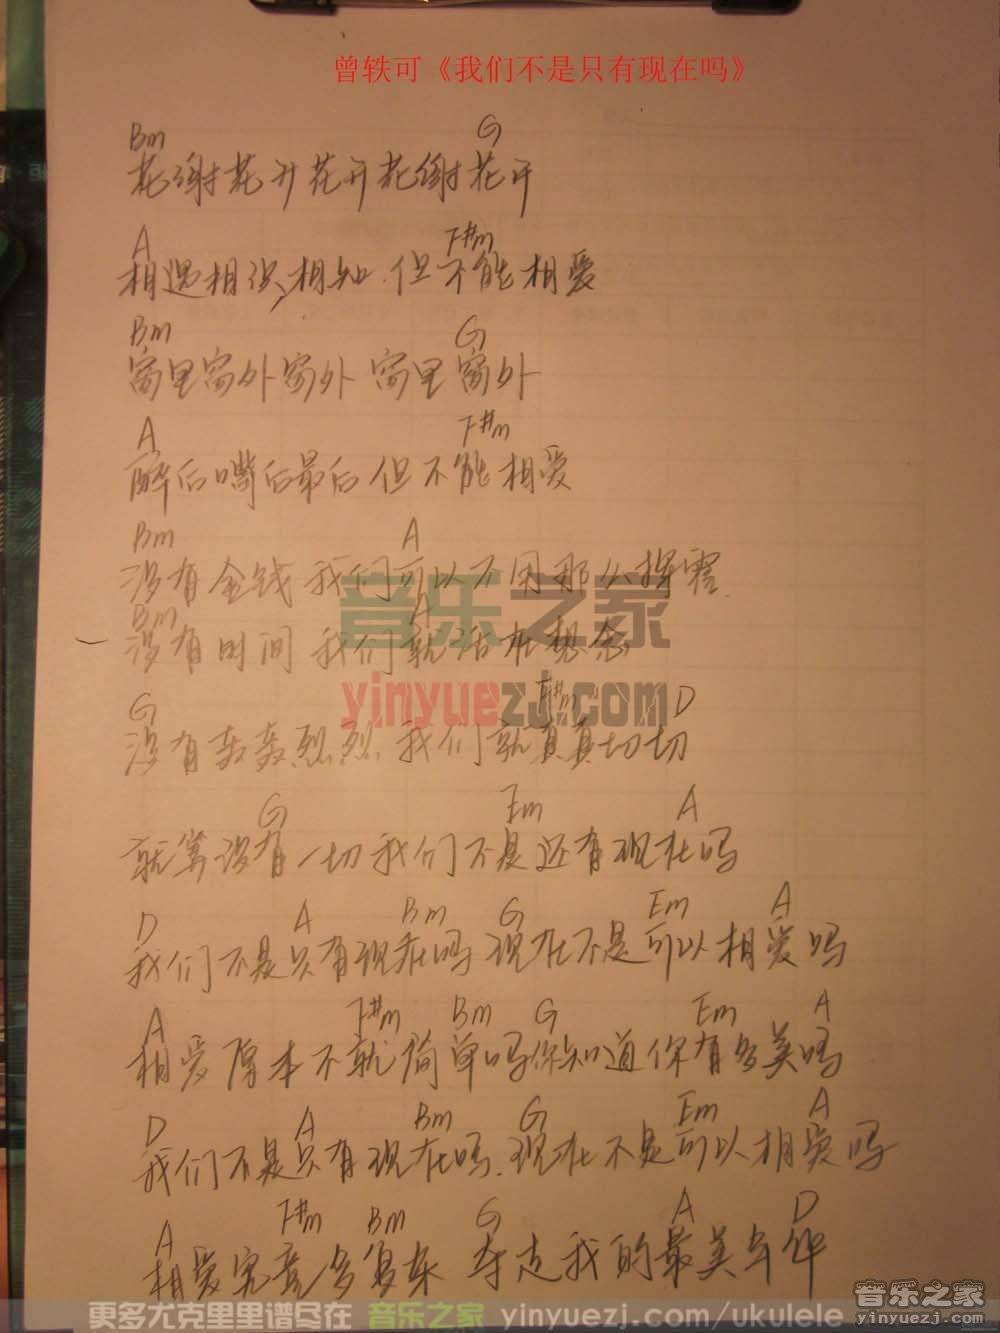 曾轶可《我们不是只有现在吗》
Bm G
花谢花开花开花谢花开
A F#m
相遇相识,相知.但不能相爱
Bm G
窗里窗外窗外 窗里窗外
A F#m
醉后嘴后最后但不能相爱
Bm A
没有金钱 我们可以不用那么挥霍.
Bm A
没有时间 我们就活在想念
G F#m D
没有轰轰烈烈.我们就真真切切
G Em A
就算没有一切我们不是还有现在吗
D A Bm G Em A
我们不是只有现在吗 现在不是可以相爱吗
A F#m Bm G Em A
相爱原本不就简单吗你知道你有多美吗
D A Bm G Em A
我们不是只有现在吗.现在不是可以相爱吗
A F#m Bm G A D
相爱究竟多复杂 夺走我的最美年华
音乐之家
yinyuezj.com
更多尤克里里谱尽在 音乐之家 yinyuezj.com/ukulele
音乐之家
yinyuezj.com